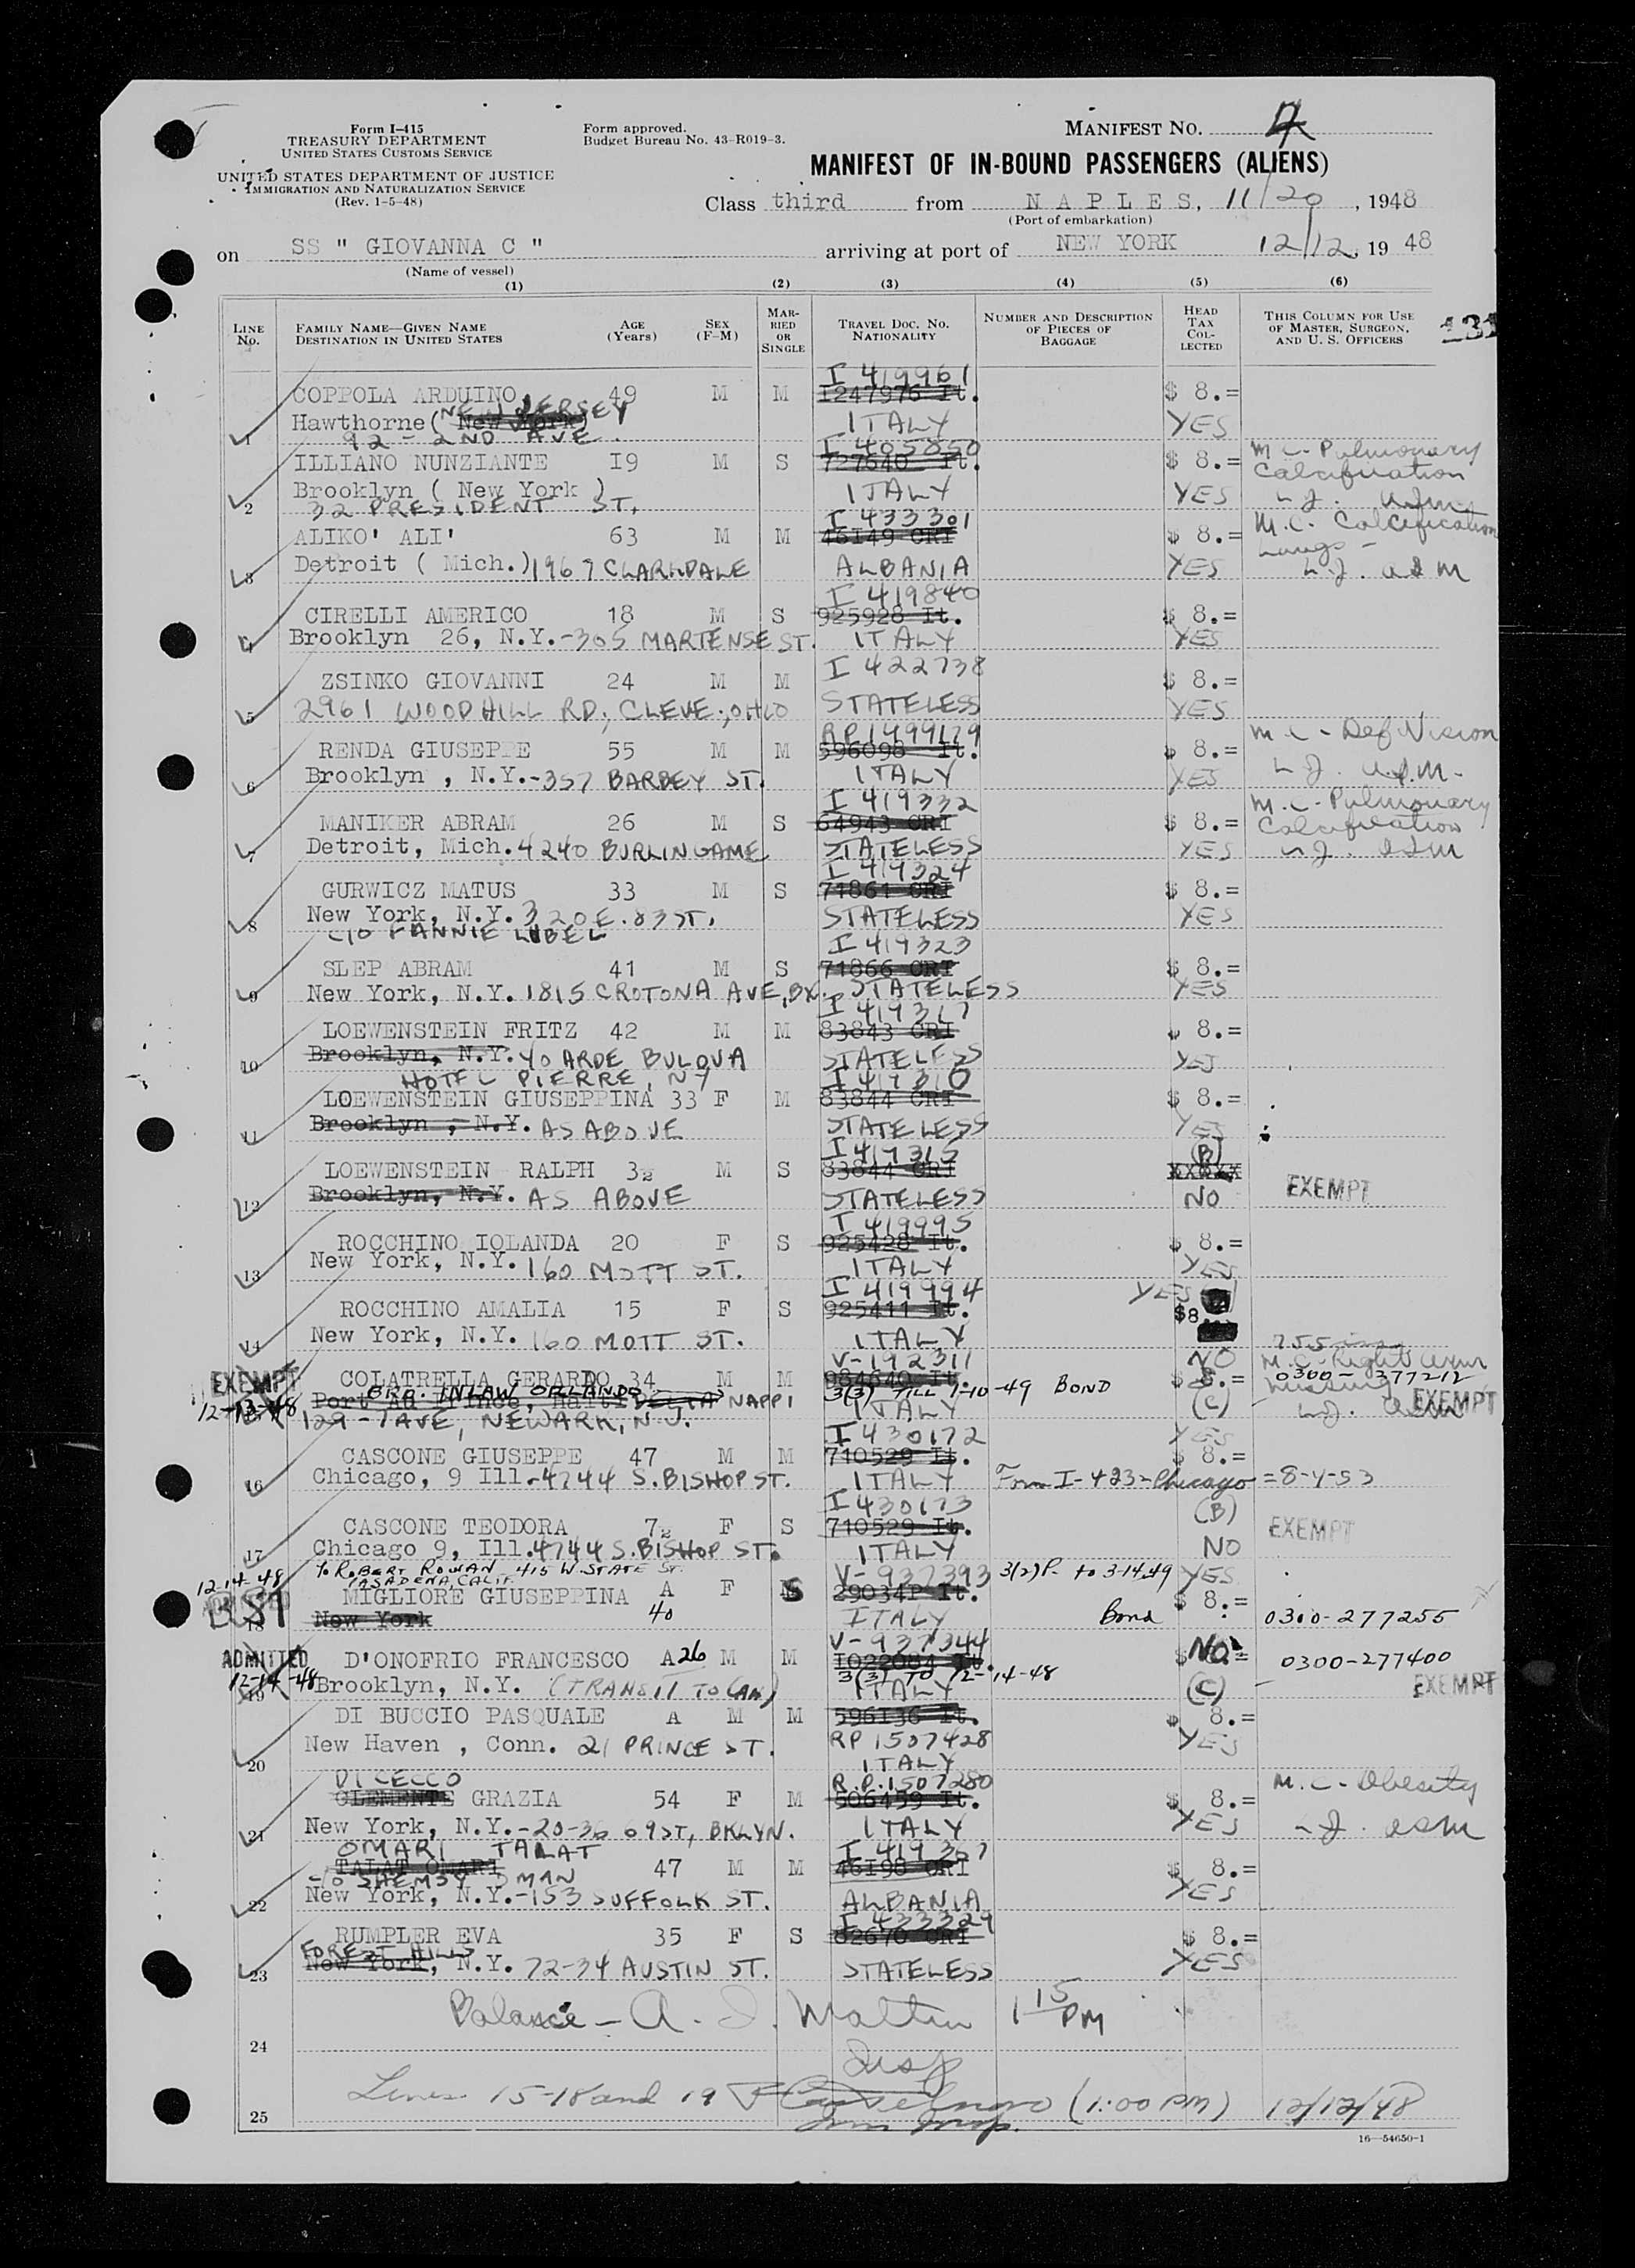 Form I-415
TREASURY DEPARTMENT
UNITED STATES CUSTOMS SERVICE
UNITED STATES DEPARTMENT OF JUSTICE
IMMIGRATION AND NATURALIZATION SERVICE
(Rev. 1-5-48)
Form approved.
Budget Bureau No. 43-R019-3.
MANIFEST NO. 4
MANIFEST OF IN-BOUND PASSENGERS (ALIENS)
Class third from NAPLES, 11/20, 1948
(Port of embarkation)
on SS " GIOVANNA C " arriving at port of NEW YORK 12/12, 19 48
(Name of vessel)
(1) (2) (3) (4) (5) (6)
LINE No. FAMILY NAME—GIVEN NAME DESTINATION IN UNITED STATES AGE (Years) SEX (F-M) MARRIED OR SINGLE TRAVEL DOC. No. NATIONALITY NUMBER AND DESCRIPTION OF PIECES OF BAGGAGE HEAD TAX COLLECTED THIS COLUMN FOR USE OF MASTER, SURGEON, AND U. S. OFFICERS 131
I 419961
COPPOLA ARDUINO 49 M M 1247976 It. $ 8.=
NEW JERSEY
1 Hawthorne ( New York) ITALY YES
92 - 2ND AVE.
I 405850 M C - Pulmonary
ILLIANO NUNZIANTE I9 M S 727640 It. $ 8.= Calcification
2 Brooklyn ( New York ) ITALY YES
32 PRESIDENT ST.
I 433301 M.C. Calcification
ALIKO' ALI' 63 M M 46149 CRI $ 8.= Lungs -
3 Detroit ( Mich.) 1967 CLARKDALE ALBANIA YES
I 419840
CIRELLI AMERICO 18 M S 925928 It. $ 8.=
4 Brooklyn 26, N.Y.-305 MARTENSE ST. ITALY YES
I 422738
ZSINKO GIOVANNI 24 M M $ 8.=
5 2961 WOODHILL RD., CLEVE., OHIO STATELESS YES
RP 1499179 M C - Def Vision
RENDA GIUSEPPE 55 M M 596098 It. $ 8.=
6 Brooklyn , N.Y.-357 BARBEY ST. ITALY YES
I 419332 M.C - Pulmonary
MANIKER ABRAM 26 M S 64943 CRI $ 8.= Calcification
7 Detroit, Mich. 4240 BURLINGAME STATELESS YES
I 419324
GURWICZ MATUS 33 M S 71861 CRI $ 8.=
8 New York, N.Y. 320 E. 83 ST. STATELESS YES
C/O FANNIE LUBEL
I 419323
SLEP ABRAM 41 M S 71866 CRI $ 8.=
9 New York, N.Y. 1815 CROTONA AVE, BX. STATELESS YES
I 419317
LOEWENSTEIN FRITZ 42 M M 83843 CRI $ 8.=
10 Brooklyn, N.Y. c/o ARDE BULOVA STATELESS YES
HOTEL PIERRE, NY
I 419310
LOEWENSTEIN GIUSEPPINA 33 F M 83844 CRI $ 8.=
11 Brooklyn , N.Y. AS ABOVE STATELESS YES
I 419315 (B)
LOEWENSTEIN RALPH 3½ M S 83844 CRI XXXXX
12 Brooklyn, N.Y. AS ABOVE STATELESS NO EXEMPT
I 419995
ROCCHINO IOLANDA 20 F S 925428 It. $ 8.=
13 New York, N.Y. 160 MOTT ST. ITALY YES
I 419994 YES
ROCCHINO AMALIA 15 F S 925411 It. $8
14 New York, N.Y. 160 MOTT ST. ITALY
V-192311 NO M.C - Right
EXEMPT COLATRELLA GERARDO 34 M M 984640 It. $ 8.= 0300-377212
BRO. INLAW ORLANDO 3(3) TILL 1-10-49 BOND
12-13-48 Port Au Prince, Haiti NAPPI ITALY (C) EXEMPT
129-7 AVE, NEWARK, N.J.
I 430172 YES
CASCONE GIUSEPPE 47 M M 710529 It. $ 8.=
16 Chicago, 9 Ill.-4744 S. BISHOP ST. ITALY Form I-423-Chicago = 8-4-53
I 430173 (B)
CASCONE TEODORA 7½ F S 710529 It. EXEMPT
17 Chicago 9, Ill. 4744 S. BISHOP ST. ITALY NO
c/o ROBERT ROWAN 415 W. STATE ST. V-937393 3(2)P- to 3-14-49 YES
12-14-48 PASADENA, CALIF.
MIGLIORE GIUSEPPINA A F S 29034P It. $ 8.=
18 New York 40 ITALY Bond 0300-277255
V-937344
ADMITTED D'ONOFRIO FRANCESCO A26 M M I022084 It. $ No = 0300-277400
3(3) TO 12-14-48
12-14-48 19 Brooklyn, N.Y. (TRANSIT TO CAN) ITALY (C) EXEMPT
DI BUCCIO PASQUALE A M M 596I36 It. $ 8.=
20 New Haven , Conn. 21 PRINCE ST. RP 1507428 YES
ITALY
DI CECCO R.P. 1507280 M.C - Obesity
CLEMENTE GRAZIA 54 F M 506459 It. $ 8.=
21 New York, N.Y.-20-36 69 ST, BKLYN. ITALY YES
OMARI TALAT I 419367
TALAT OMARI 47 M M 46I98 CRI $ 8.=
c/o SHEMSY OMAN
22 New York, N.Y.-153 SUFFOLK ST. ALBANIA YES
I 433329
RUMPLER EVA 35 F S 82670 CRI $ 8.=
FOREST HILLS
23 New York, N.Y. 72-34 AUSTIN ST. STATELESS YES
Balance - A. J. 1 15 PM
24 Insp
25 Lines 15-18 and 19 (1:00 PM) 12/12/48
Imm Insp.
16—54650-1